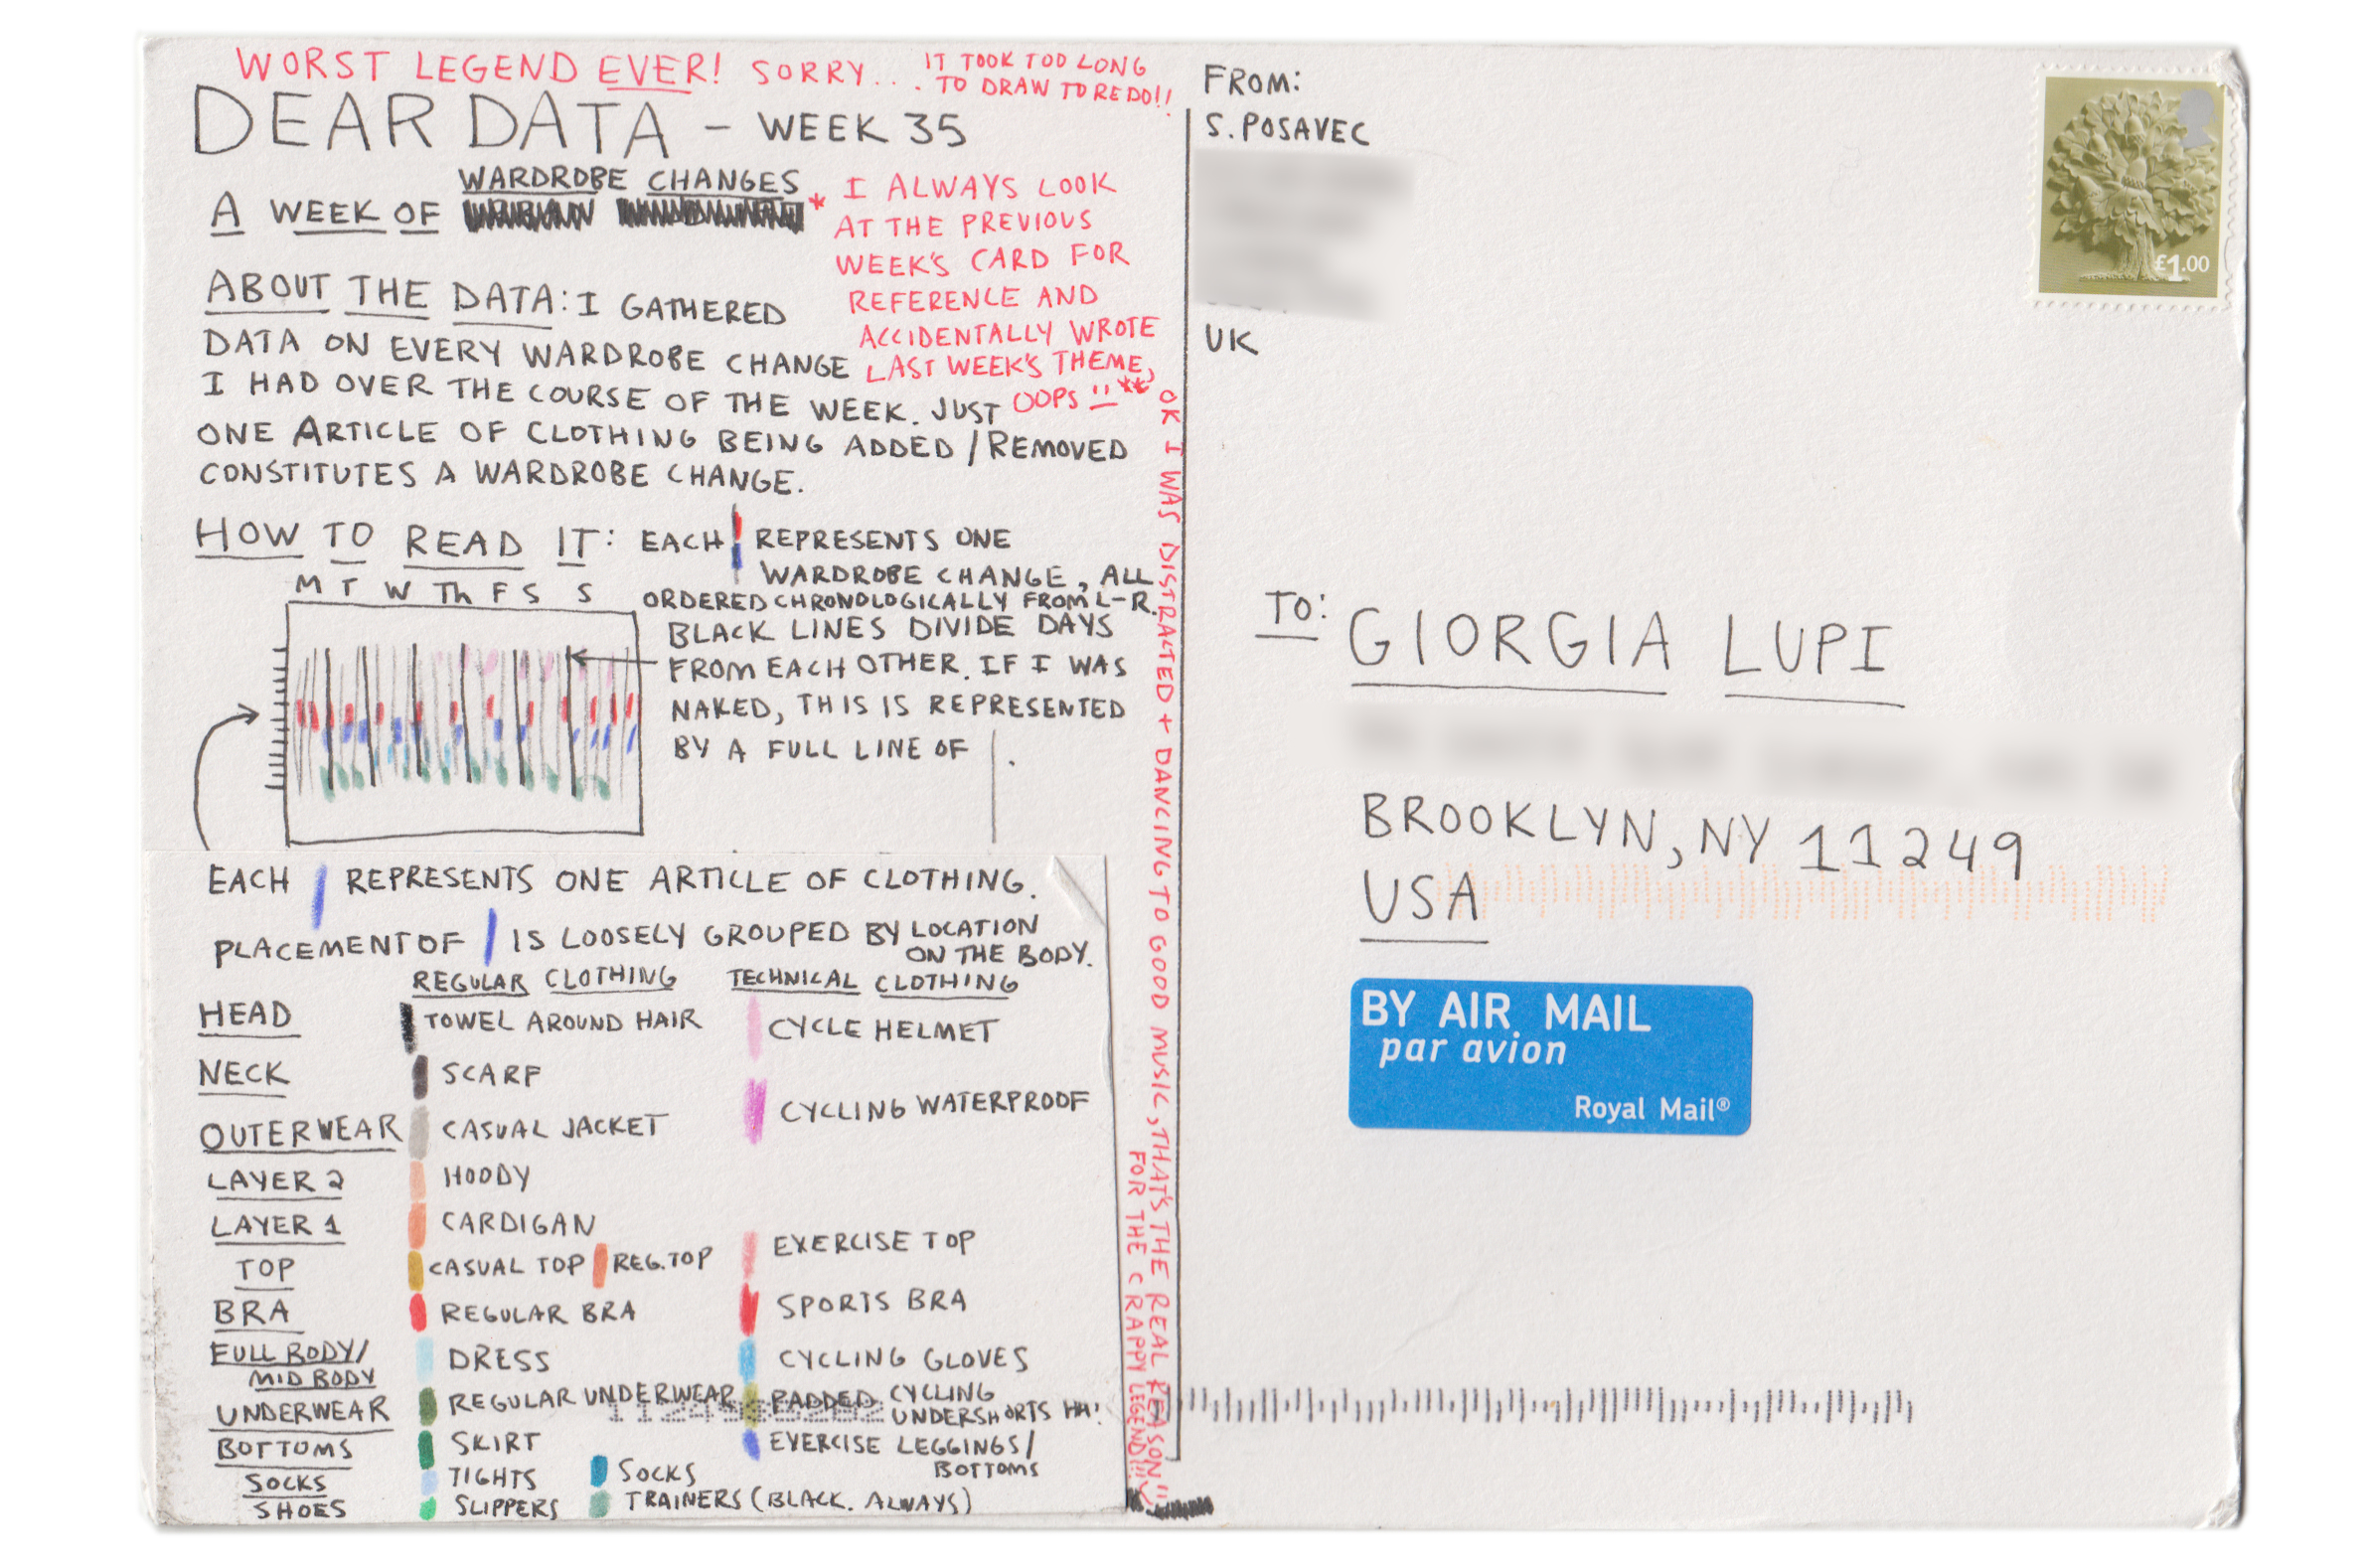 WORST LEGEND EVER! SORRY... IT TOOK TOO LONG
TO DRAW TO REDO!!
DEAR DATA - WEEK 35
A WEEK OF WARDROBE CHANGES *
* I ALWAYS LOOK
AT THE PREVIOUS
WEEK'S CARD FOR
REFERENCE AND
ACCIDENTALLY WROTE
LAST WEEK'S THEME,
OOPS **
ABOUT THE DATA: I GATHERED
DATA ON EVERY WARDROBE CHANGE
I HAD OVER THE COURSE OF THE WEEK. JUST
ONE ARTICLE OF CLOTHING BEING ADDED/REMOVED
CONSTITUTES A WARDROBE CHANGE.
HOW TO READ IT: EACH REPRESENTS ONE
WARDROBE CHANGE, ALL
ORDERED CHRONOLOGICALLY FROM L-R.
BLACK LINES DIVIDE DAYS
FROM EACH OTHER. IF I WAS
NAKED, THIS IS REPRESENTED
BY A FULL LINE OF |.
M T W Th F S S
EACH REPRESENTS ONE ARTICLE OF CLOTHING.
PLACEMENT OF IS LOOSELY GROUPED BY LOCATION
ON THE BODY.
REGULAR CLOTHING TECHNICAL CLOTHING
HEAD TOWEL AROUND HAIR CYCLE HELMET
NECK SCARF
CYCLING WATERPROOF
OUTERWEAR CASUAL JACKET
LAYER 2 HOODY
LAYER 1 CARDIGAN
TOP CASUAL TOP REG. TOP EXERCISE TOP
BRA REGULAR BRA SPORTS BRA
FULL BODY/
MID BODY DRESS CYCLING GLOVES
UNDERWEAR REGULAR UNDERWEAR PADDED CYCLING
UNDERSHORTS HA!
BOTTOMS SKIRT EXERCISE LEGGINGS/
BOTTOMS
SOCKS TIGHTS SOCKS
SHOES SLIPPERS TRAINERS (BLACK. ALWAYS)
OK I WAS DISTRACTED + DANCING TO GOOD MUSIC, THAT'S THE REAL REASON
FOR THE CRAPPY LEGEND!!!
FROM:
S. POSAVEC
UK
£1.00
TO: GIORGIA LUPI
BROOKLYN, NY 11249
USA
BY AIR MAIL
par avion
Royal Mail®